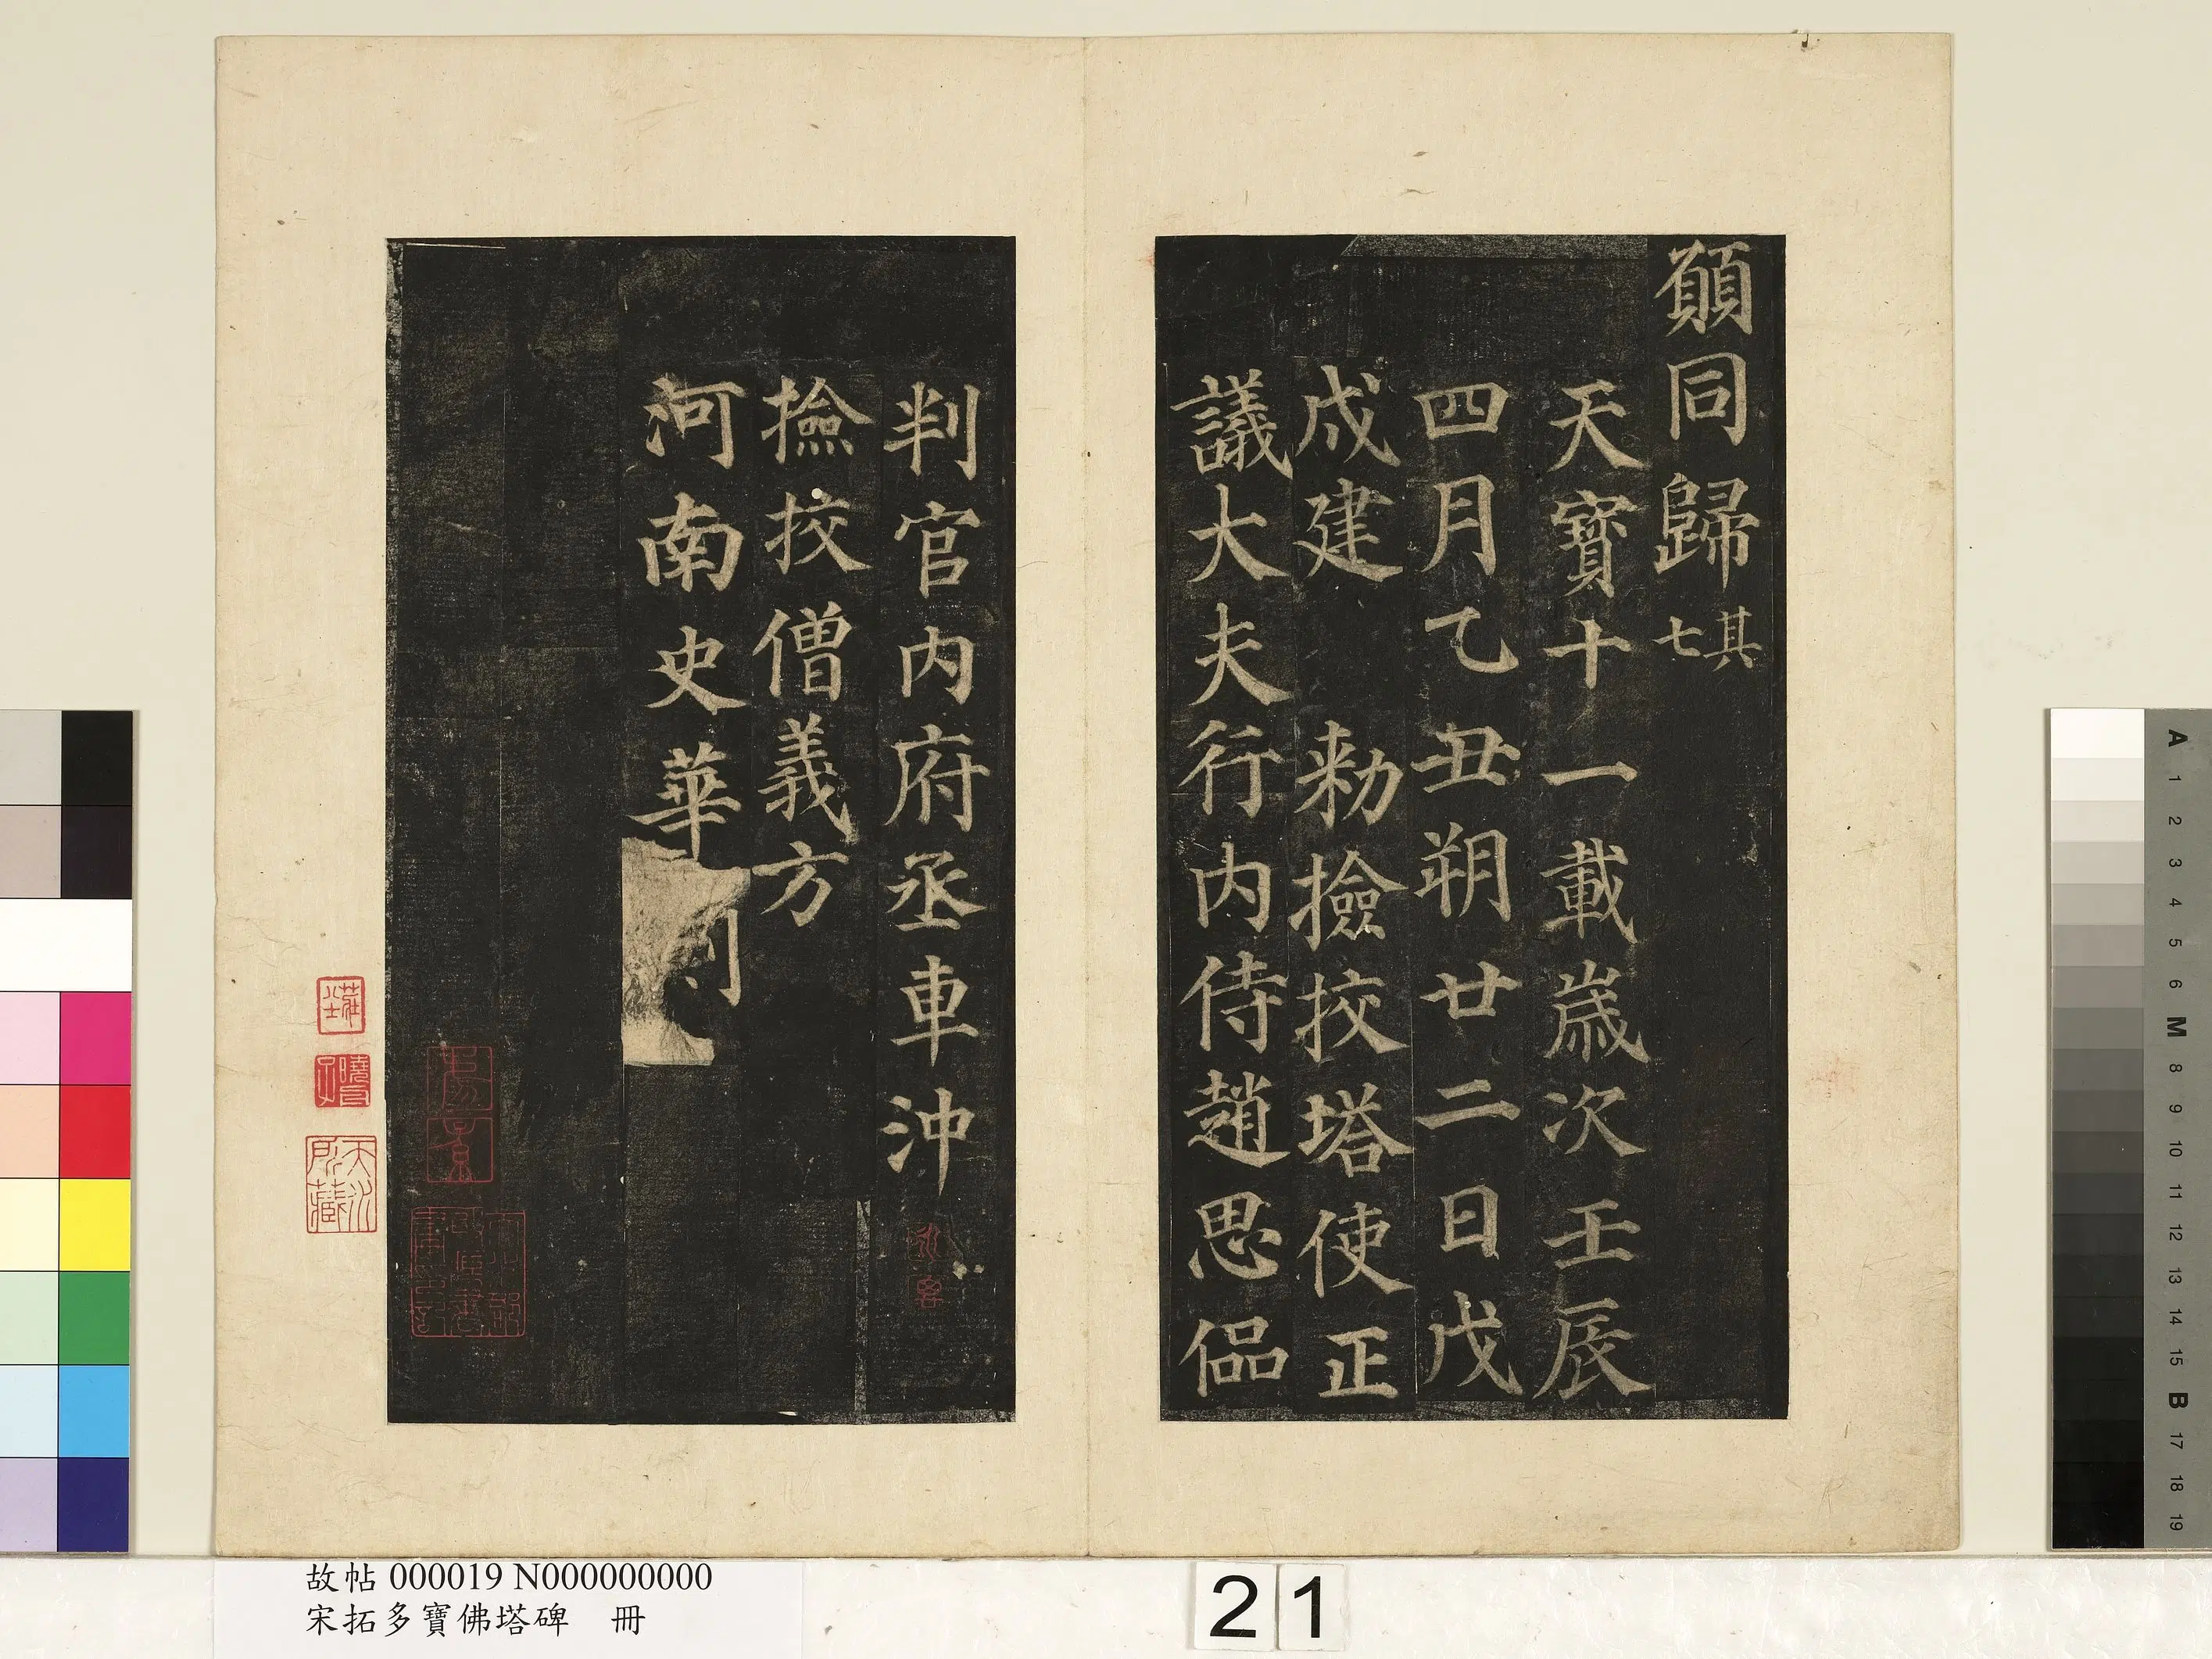 願同歸其七
天寶十一載歲次壬辰
四月乙丑朔廿二日戊
戍建 勑撿挍塔使正
議大夫行内侍趙思偘
判官内府丞車沖
撿挍僧義方
河南史華刻
天水所藏
故帖 000019 N000000000
宋拓多寶佛塔碑 冊
21
A
1
2
3
4
5
6
M
8
9
10
11
12
13
14
15
B
17
18
19